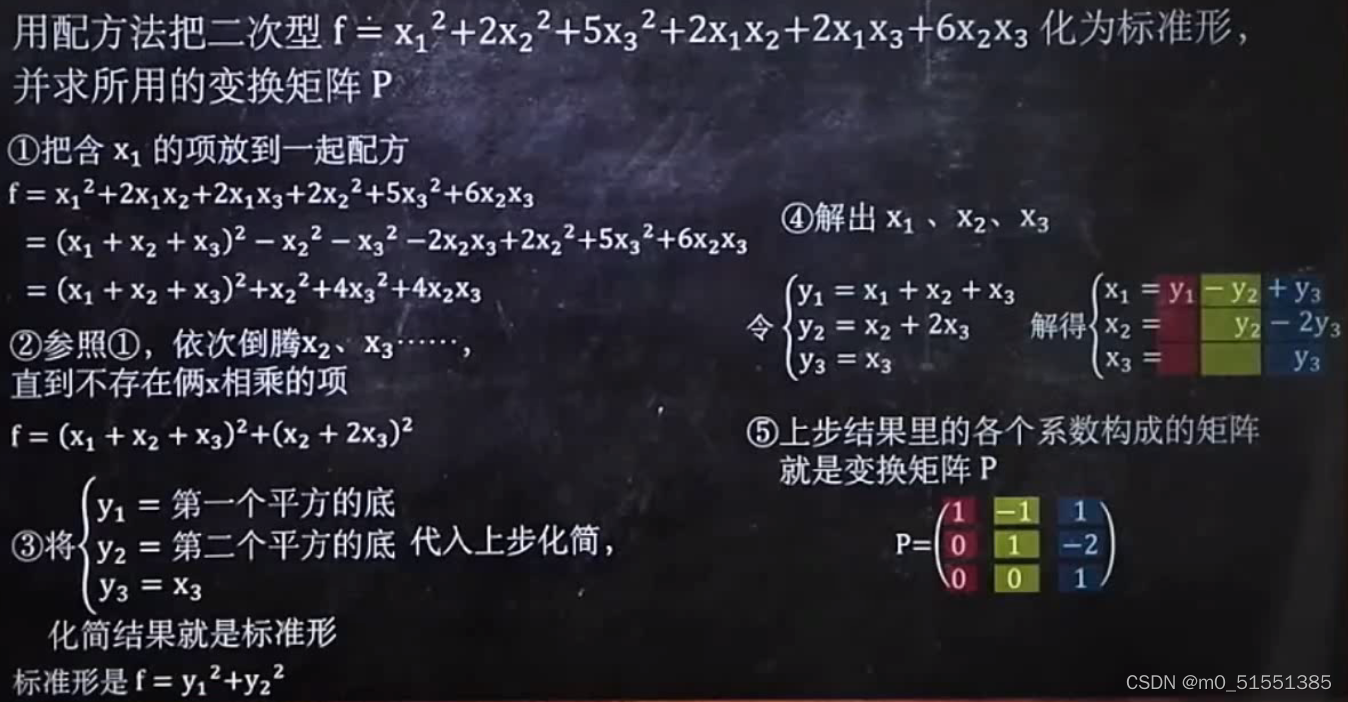 用配方法把二次型 f = x₁²+2x₂²+5x₃²+2x₁x₂+2x₁x₃+6x₂x₃ 化为标准形，
并求所用的变换矩阵 P
①把含 x₁ 的项放到一起配方
f = x₁²+2x₁x₂+2x₁x₃+2x₂²+5x₃²+6x₂x₃
= (x₁ + x₂ + x₃)² − x₂² − x₃² −2x₂x₃+2x₂²+5x₃²+6x₂x₃
= (x₁ + x₂ + x₃)²+x₂²+4x₃²+4x₂x₃
②参照①，依次倒腾x₂、x₃……，
直到不存在俩x相乘的项
f = (x₁ + x₂ + x₃)²+(x₂ + 2x₃)²
y₁ = 第一个平方的底
③将{y₂ = 第二个平方的底 代入上步化简，
y₃ = x₃
化简结果就是标准形
标准形是 f = y₁²+y₂²
④解出 x₁ 、x₂、x₃
y₁ = x₁ + x₂ + x₃ x₁ = y₁ − y₂ + y₃
令{y₂ = x₂ + 2x₃ 解得{x₂ = y₂ − 2y₃
y₃ = x₃ x₃ = y₃
⑤上步结果里的各个系数构成的矩阵
就是变换矩阵 P
1 −1 1
P=(0 1 −2)
0 0 1
CSDN @m0_51551385